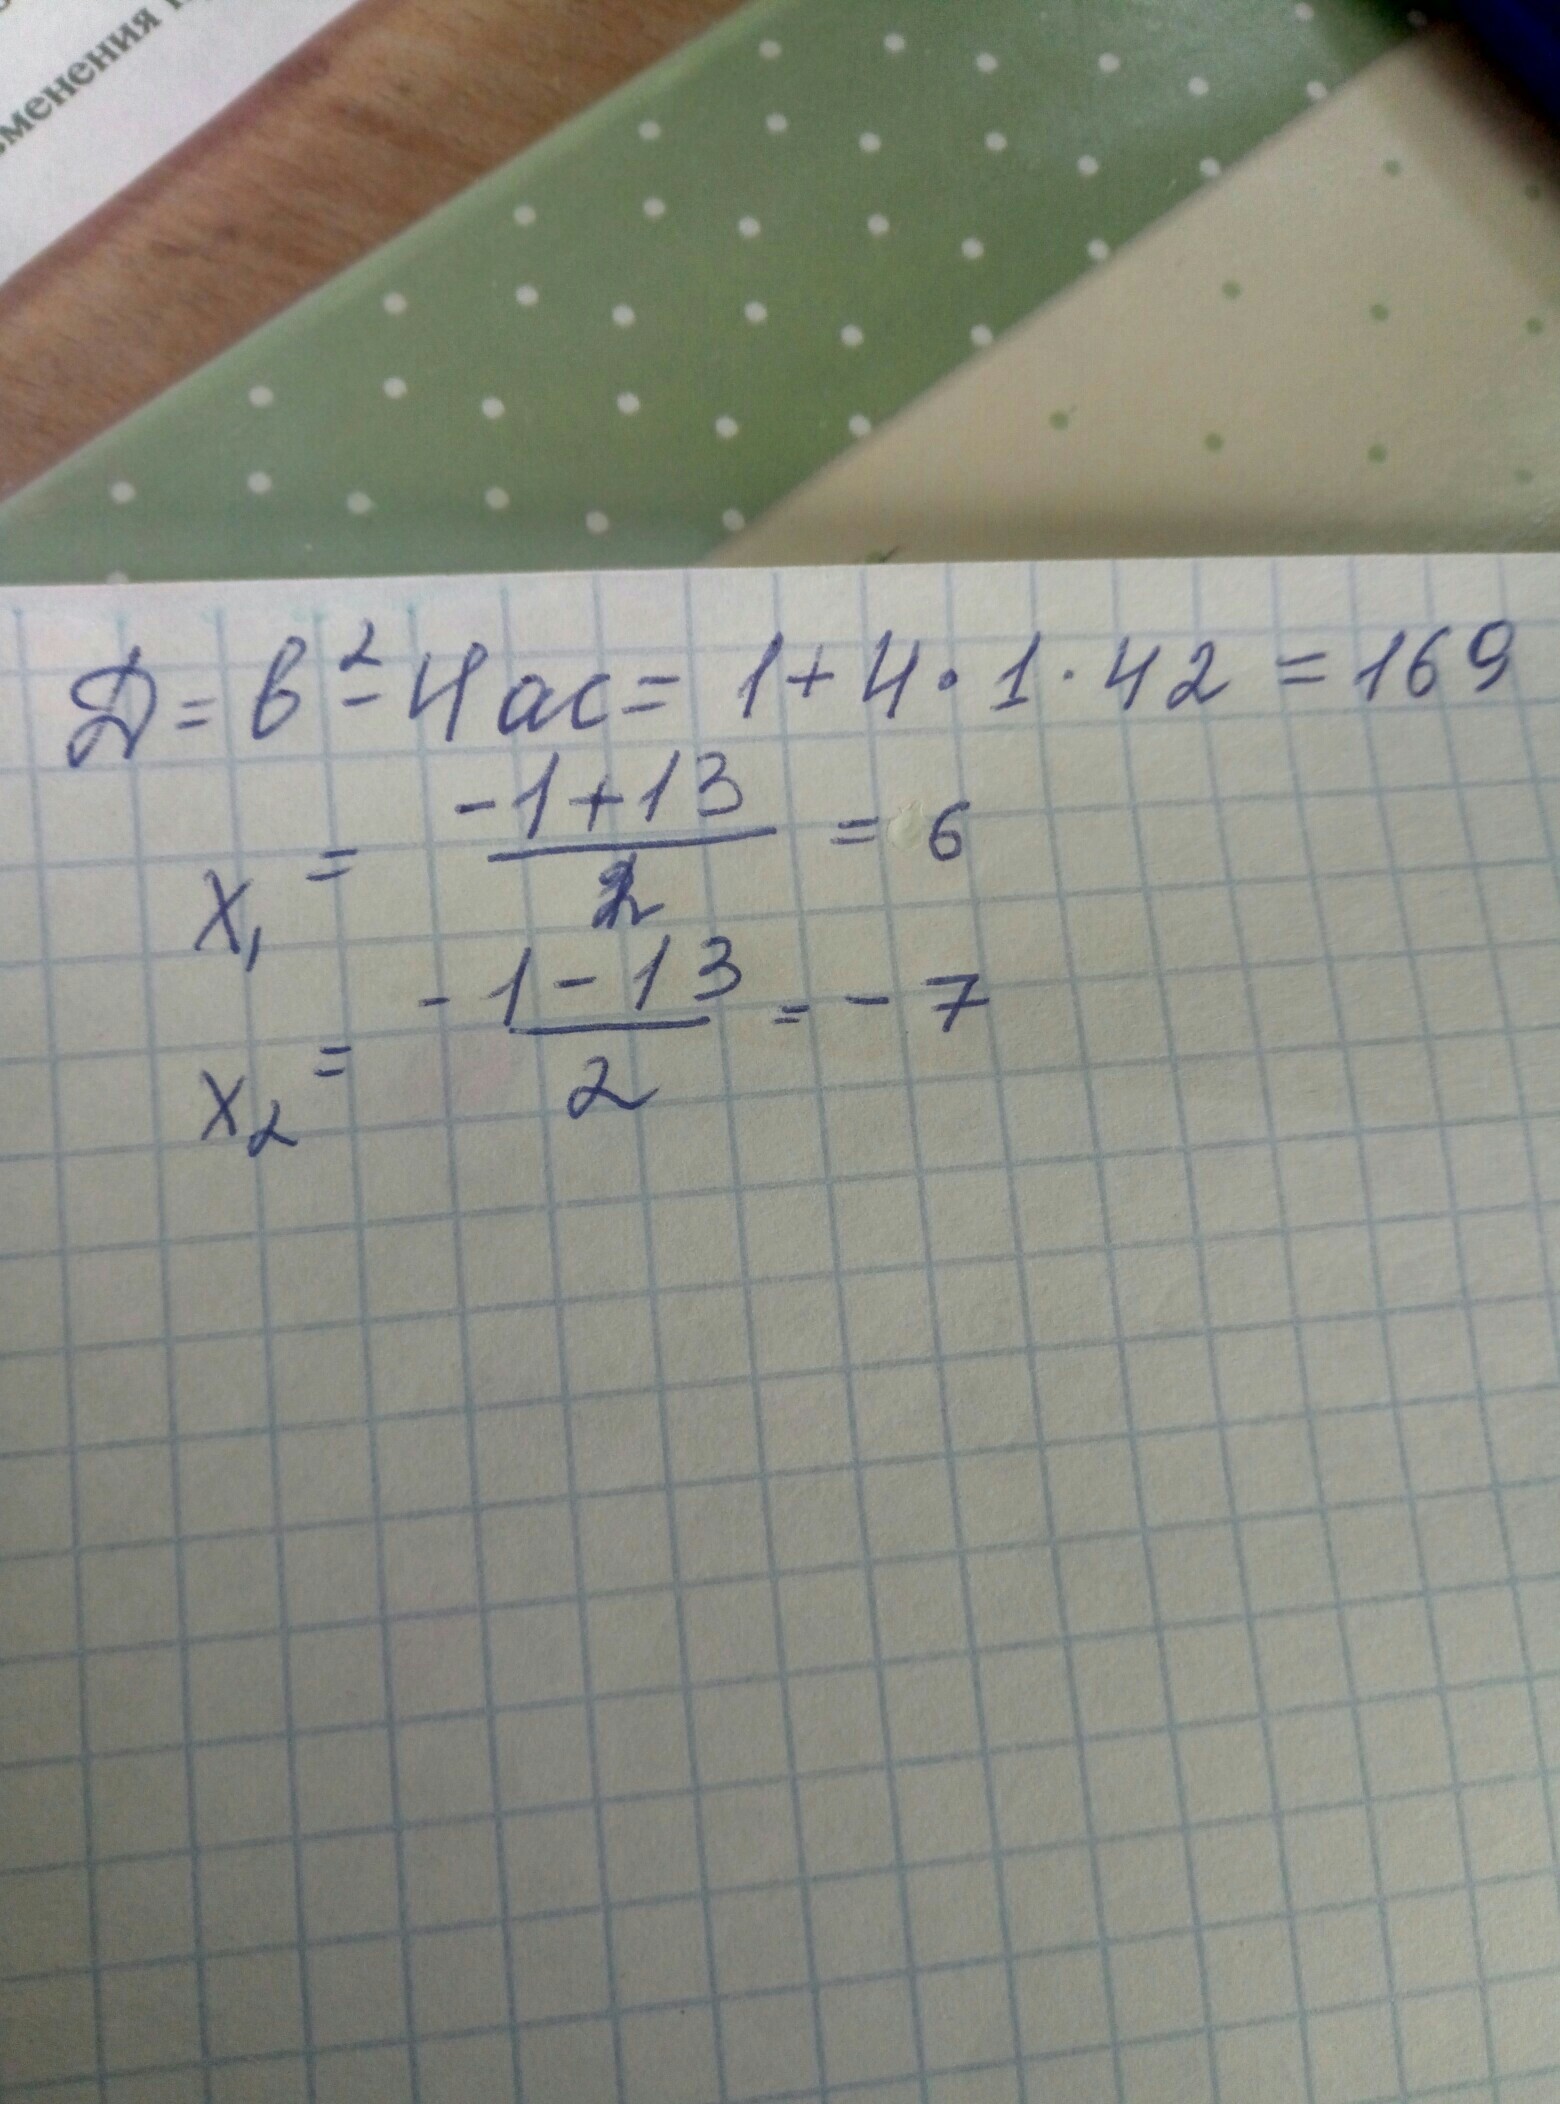 зменения
Д = в² - 4ac = 1 + 4 · 1 · 42 = 169
x₁ = (-1 + 13) / 2 = 6
x₂ = (-1 - 13) / 2 = - 7